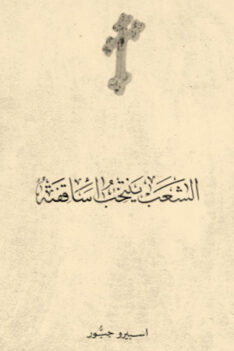 الشعب ينتخب أساقفته
اسبيرو جبّور